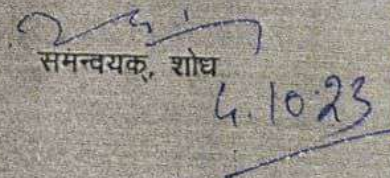 समन्वयक, शोध
4.10.23